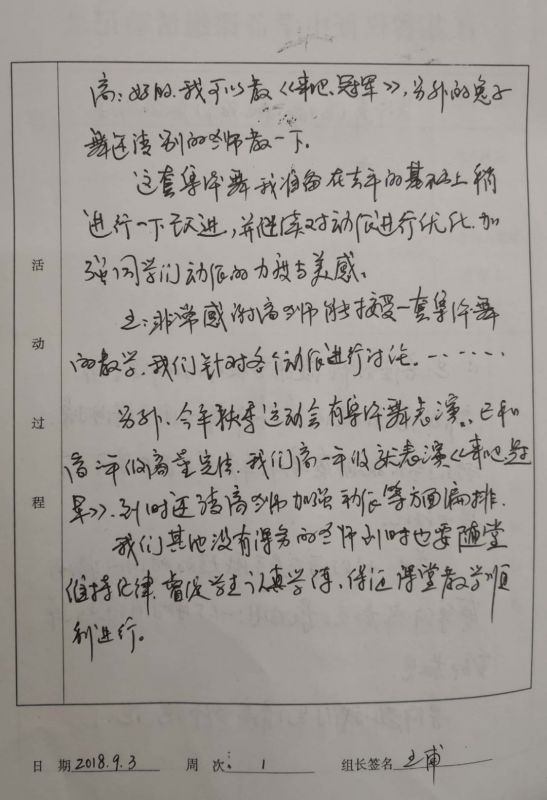 高：好的，我可以教《来吧，冠军》，另外的兔子
舞还请别的老师教一下。
这套集体舞我准备在去年的基础上稍
进行一下改进，并继续对动作进行优化，加
强同学们动作的力度与美感。
王：非常感谢高老师能接受一套集体舞
的教学，我们针对各个动作进行讨论。……
另外，今年秋季运动会有集体舞表演。已和
高二年级商量定法，我们高一年级就表演《来吧，冠
军》，到时还请高老师加强动作等方面编排。
我们其他没有任务的老师到时也要随堂
维持纪律，督促学生认真学练，保证课堂教学顺
利进行。
活动过程
日 期 2018.9.3 周 次： 1 组长签名 王甫